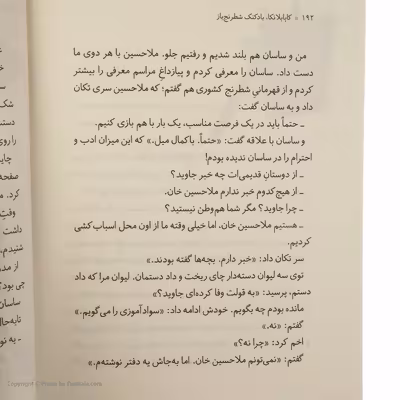 ۱۹۲ » کاپابلانکا، بادکنک شطرنج‌باز
من و ساسان هم بلند شدیم و رفتیم جلو. ملاحسین با هر دوی ما
دست داد. ساسان را معرفی کردم و پیازداغ مراسم معرفی را بیشتر
کردم و از قهرمانی شطرنج کشوری هم گفتم؛ که ملاحسین سری تکان
داد و به ساسان گفت:
ـ حتماً باید در یک فرصت مناسب، یک بار با هم بازی کنیم.
و ساسان با علاقه گفت: «حتماً. باکمال میل.» که این میزان ادب و
احترام را در ساسان ندیده بودم!
ـ از دوستان قدیمی‌ات چه خبر جاوید؟
ـ از هیچ‌کدوم خبر ندارم ملاحسین خان.
ـ چرا جاوید؟ مگر شما هم‌وطن نیستید؟
ـ هستیم ملاحسین خان. اما خیلی وقته ما از اون محل اسباب کشی
کردیم.
سر تکان داد: «خبر دارم. بچه‌ها گفته بودند.»
توی سه لیوان دسته‌دار چای ریخت و داد دستمان. لیوان مرا که داد
دستم، پرسید: «به قولت وفا کرده‌ای جاوید؟»
مانده بودم چه بگویم. خودش ادامه داد: «سوادآموزی را می‌گویم.»
گفتم: «نه.»
اخم کرد: «چرا نه؟»
گفتم: «نمی‌تونم ملاحسین خان. اما به‌جاش یه دفتر نوشته‌م.»